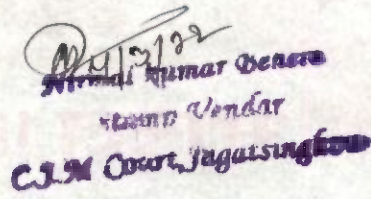 14/3/22
Nirmal Kumar Behera
Stamp Vendar
C.J.M Court, Jagatsinghpur